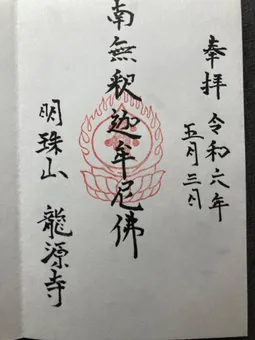 奉拝 令和六年
五月三日
南無釈迦牟尼佛
明珠山 龍源寺